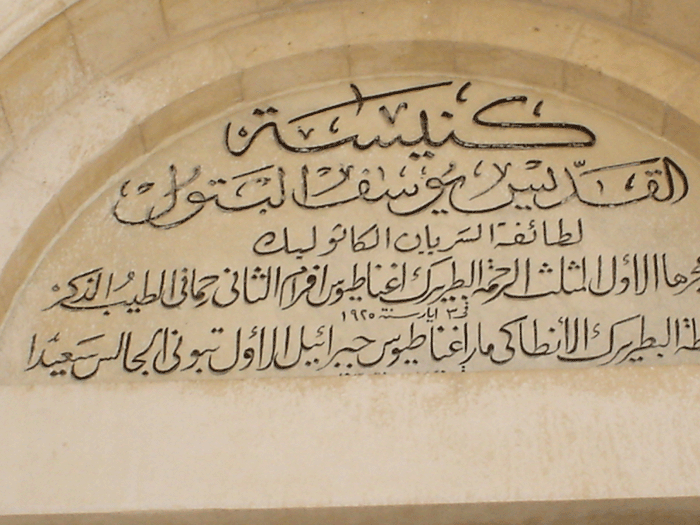 كنيسة
القديس يوسف البتول
لطائفة السريان الكاثوليك
الاول المثلث الرحمة البطريرك اغناطيوس افرام الثاني رحماني الطيب الذكر
في ٣ ايار سنة ١٩٢٥
البطريرك الأنطاكي مار اغناطيوس جبرائيل الاول تبوني الجالس سعيدًا